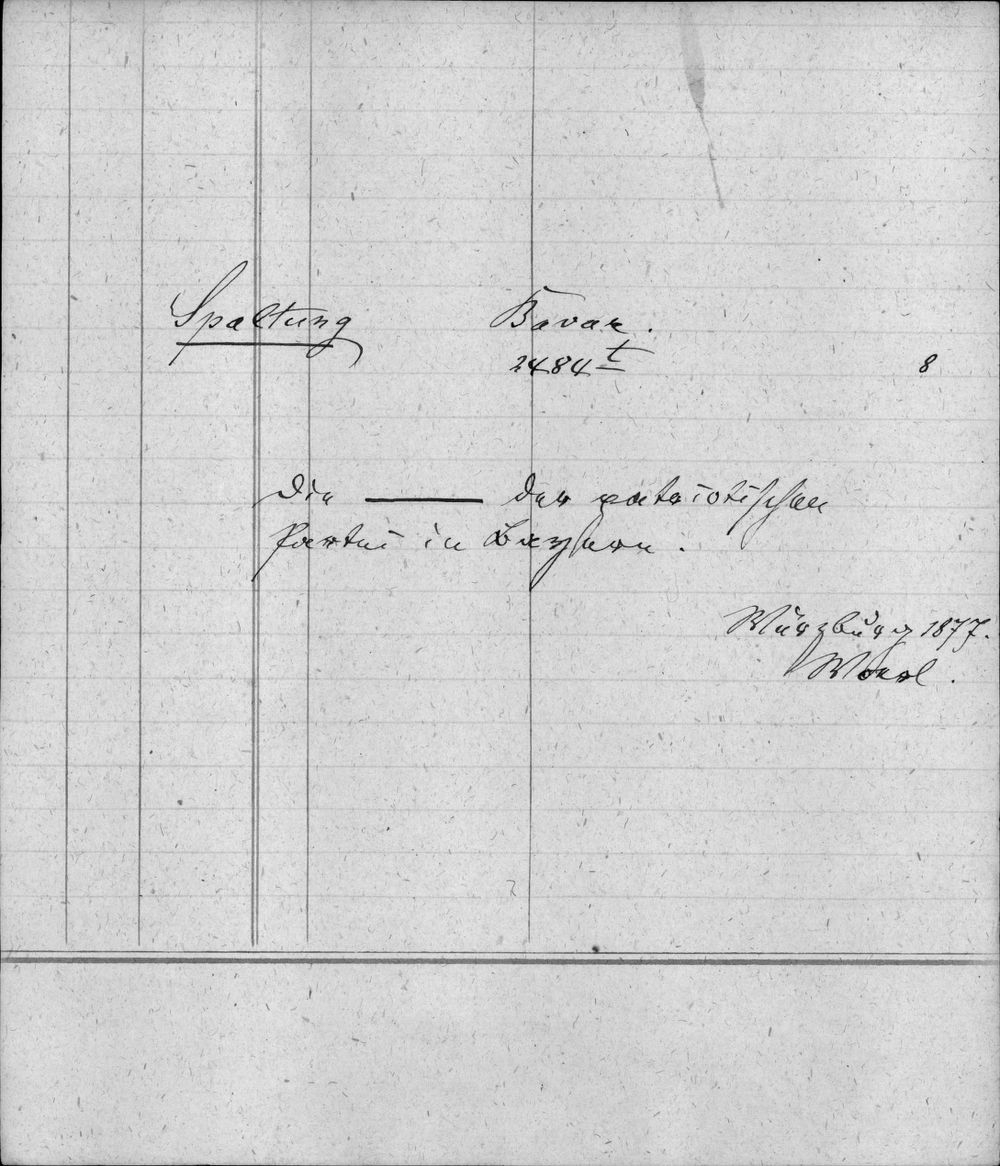 Spaltung Bavar.
2484 t 8
Die ——— der patriotischen
Partei in Bayern.
Würzburg 1877.
Woerl.